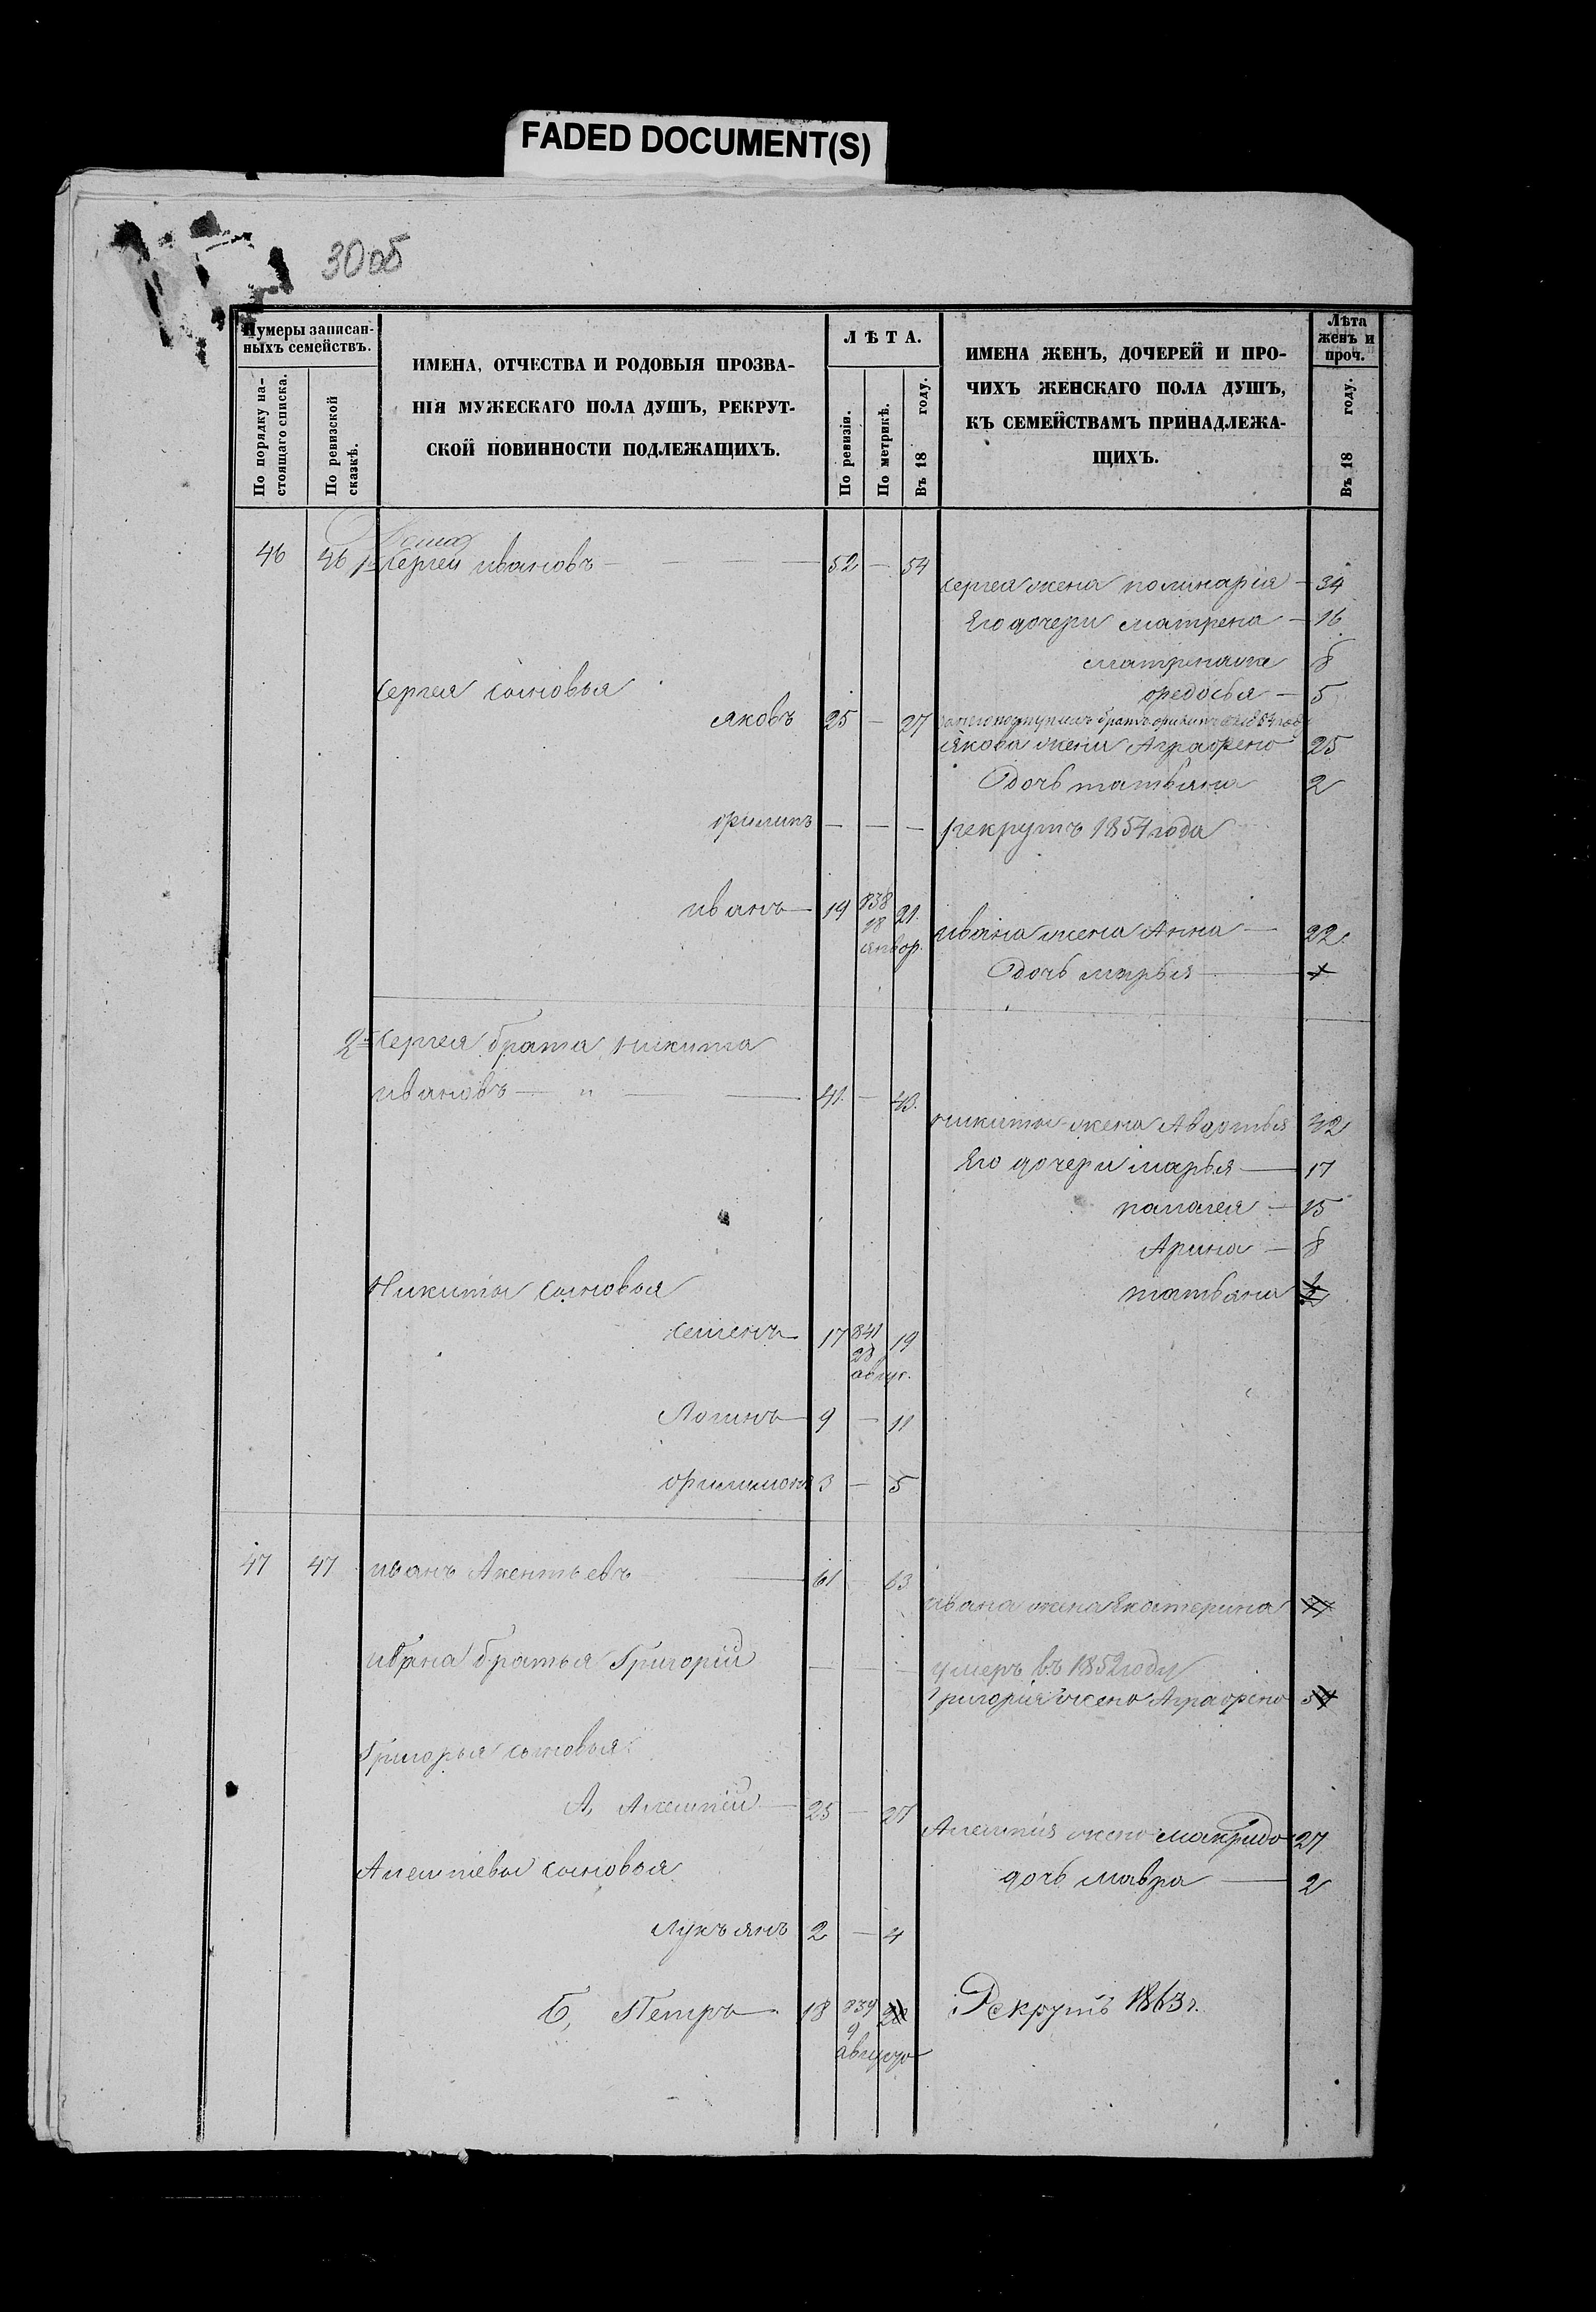 FADED DOCUMENT(S)
30 об
Нумеры записан-
ныхъ семействъ.
По порядку на-
стоящаго списка.
По ревизской
сказкѣ.
ИМЕНА, ОТЧЕСТВА И РОДОВЫЯ ПРОЗВА-
НІЯ МУЖЕСКАГО ПОЛА ДУШЪ, РЕКРУТ-
СКОЙ ПОВИННОСТИ ПОДЛЕЖАЩИХЪ.
ЛѢТА.
По ревизіи.
По метрикѣ.
Въ 18 году.
ИМЕНА ЖЕНЪ, ДОЧЕРЕЙ И ПРО-
ЧИХЪ ЖЕНСКАГО ПОЛА ДУШЪ,
КЪ СЕМЕЙСТВАМЪ ПРИНАДЛЕЖА-
ЩИХЪ.
Лѣта
женъ и
проч.
Въ 18 году.
46 46 1 Сергей ивановъ — 52 — 54
Сергея жена полинарія — 34
Его дочери матрена — 16
матренаже 8
федосья — 5
Сергея сыновья
яковъ 25 — 27
братъ филипъ
Якова жена Аграфена 25
дочь татьяна 2
филипъ — — — рекрутъ 1854 года
иванъ — 19 838 21.
18
январ.
ивана жена Анна — 22
дочь марья —
2й Сергея брата никита
ивановъ — " — 41. — 43.
никиты жена Авдотья 42
Его дочери марья — 17
палагея — 15
Арина — 8
татьяна
Никиты сыновья
семенъ 17 841 19
28
авгус.
Логинъ — 9 — 11
филимонъ 3 — 5
47 47 иванъ Акентьевъ — 61 63
ивана жена Екатерина
ивана братья Григорій — — — умеръ въ 1852 году
Григорія жена Аграфена
Григорья сыновья
А, Алемпій — 25 — 27
Алемпія жена макрида 27
дочь мавра — 2
Алемпіевы сыновья
Лукъянъ 2 — 4
Б, Петръ — 18 839 20
9
августа
Рекрутъ 1863 г.